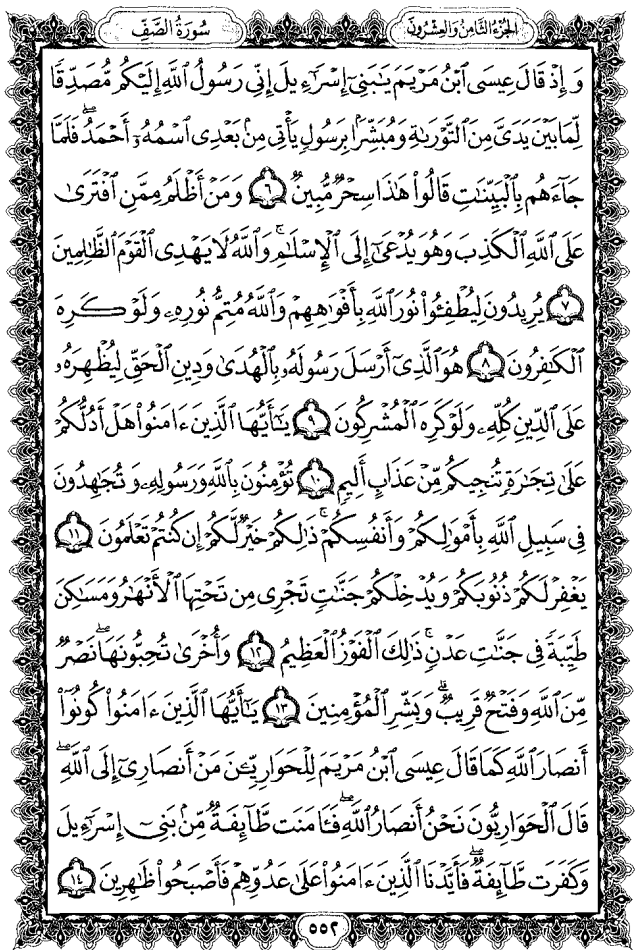 سُورَةُ الصَّفِّ
الجُزءُ الثَّامِنُ وَالعِشْرُونَ
وَإِذْ قَالَ عِيسَى ٱبْنُ مَرْيَمَ يَٰبَنِىٓ إِسْرَٰٓءِيلَ إِنِّى رَسُولُ ٱللَّهِ إِلَيْكُم مُّصَدِّقًا
لِّمَا بَيْنَ يَدَىَّ مِنَ ٱلتَّوْرَىٰةِ وَمُبَشِّرًۢا بِرَسُولٍ يَأْتِى مِنۢ بَعْدِى ٱسْمُهُۥٓ أَحْمَدُ ۖ فَلَمَّا
جَآءَهُم بِٱلْبَيِّنَٰتِ قَالُوا۟ هَٰذَا سِحْرٌ مُّبِينٌ ٦ وَمَنْ أَظْلَمُ مِمَّنِ ٱفْتَرَىٰ
عَلَى ٱللَّهِ ٱلْكَذِبَ وَهُوَ يُدْعَىٰٓ إِلَى ٱلْإِسْلَٰمِ ۚ وَٱللَّهُ لَا يَهْدِى ٱلْقَوْمَ ٱلظَّٰلِمِينَ
٧ يُرِيدُونَ لِيُطْفِـُٔوا۟ نُورَ ٱللَّهِ بِأَفْوَٰهِهِمْ وَٱللَّهُ مُتِمُّ نُورِهِۦ وَلَوْ كَرِهَ
ٱلْكَٰفِرُونَ ٨ هُوَ ٱلَّذِىٓ أَرْسَلَ رَسُولَهُۥ بِٱلْهُدَىٰ وَدِينِ ٱلْحَقِّ لِيُظْهِرَهُۥ
عَلَى ٱلدِّينِ كُلِّهِۦ وَلَوْ كَرِهَ ٱلْمُشْرِكُونَ ٩ يَٰٓأَيُّهَا ٱلَّذِينَ ءَامَنُوا۟ هَلْ أَدُلُّكُمْ
عَلَىٰ تِجَٰرَةٍ تُنجِيكُم مِّنْ عَذَابٍ أَلِيمٍ ١٠ تُؤْمِنُونَ بِٱللَّهِ وَرَسُولِهِۦ وَتُجَٰهِدُونَ
فِى سَبِيلِ ٱللَّهِ بِأَمْوَٰلِكُمْ وَأَنفُسِكُمْ ۚ ذَٰلِكُمْ خَيْرٌ لَّكُمْ إِن كُنتُمْ تَعْلَمُونَ ١١
يَغْفِرْ لَكُمْ ذُنُوبَكُمْ وَيُدْخِلْكُمْ جَنَّٰتٍ تَجْرِى مِن تَحْتِهَا ٱلْأَنْهَٰرُ وَمَسَٰكِنَ
طَيِّبَةً فِى جَنَّٰتِ عَدْنٍ ۚ ذَٰلِكَ ٱلْفَوْزُ ٱلْعَظِيمُ ١٢ وَأُخْرَىٰ تُحِبُّونَهَا ۖ نَصْرٌ
مِّنَ ٱللَّهِ وَفَتْحٌ قَرِيبٌ ۗ وَبَشِّرِ ٱلْمُؤْمِنِينَ ١٣ يَٰٓأَيُّهَا ٱلَّذِينَ ءَامَنُوا۟ كُونُوٓا۟
أَنصَارَ ٱللَّهِ كَمَا قَالَ عِيسَى ٱبْنُ مَرْيَمَ لِلْحَوَارِيِّـۧنَ مَنْ أَنصَارِىٓ إِلَى ٱللَّهِ ۖ
قَالَ ٱلْحَوَارِيُّونَ نَحْنُ أَنصَارُ ٱللَّهِ ۖ فَـَٔامَنَت طَّآئِفَةٌ مِّنۢ بَنِىٓ إِسْرَٰٓءِيلَ
وَكَفَرَت طَّآئِفَةٌ ۖ فَأَيَّدْنَا ٱلَّذِينَ ءَامَنُوا۟ عَلَىٰ عَدُوِّهِمْ فَأَصْبَحُوا۟ ظَٰهِرِينَ ١٤
٥٥٢